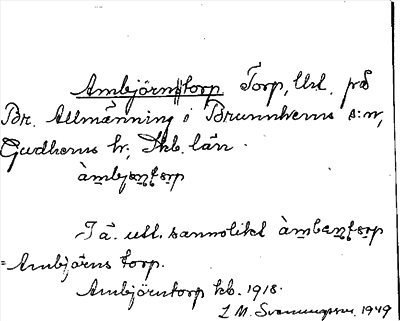 Ambjörnstorp Torp, Utl. på
Br. Allmänning i Brunnhems s:n,
Gudhems hr, Skb. län.
àmbjɷn̥ʈɷrp
I ä. utt. sannolikt àmbɷn̥ʈɷrp
= Ambjörns torp.
Ambjörntorp kb. 1918.
I. M. 1949